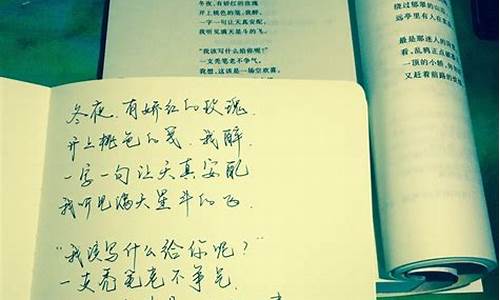 冬夜，有娇红的玫瑰
开上桃色的笺，我醉，
一字一句让天真安配，
我听见满天星斗的飞。
“我该写什么给你呢？”
一支秃笔老不争气，
我想，这该是一场空欢喜，
绕过
的山
里有人在
最是那迷人的
看，乱鸦正点破
一顶的小轿，
又赶着前路的
冬夜，有娇红的玫瑰
开上桃色的笺，我醉，
一字一句让天真安配
我听见满天星斗的飞。
“我该写什么给你呢？”
一支秃笔老不争气，